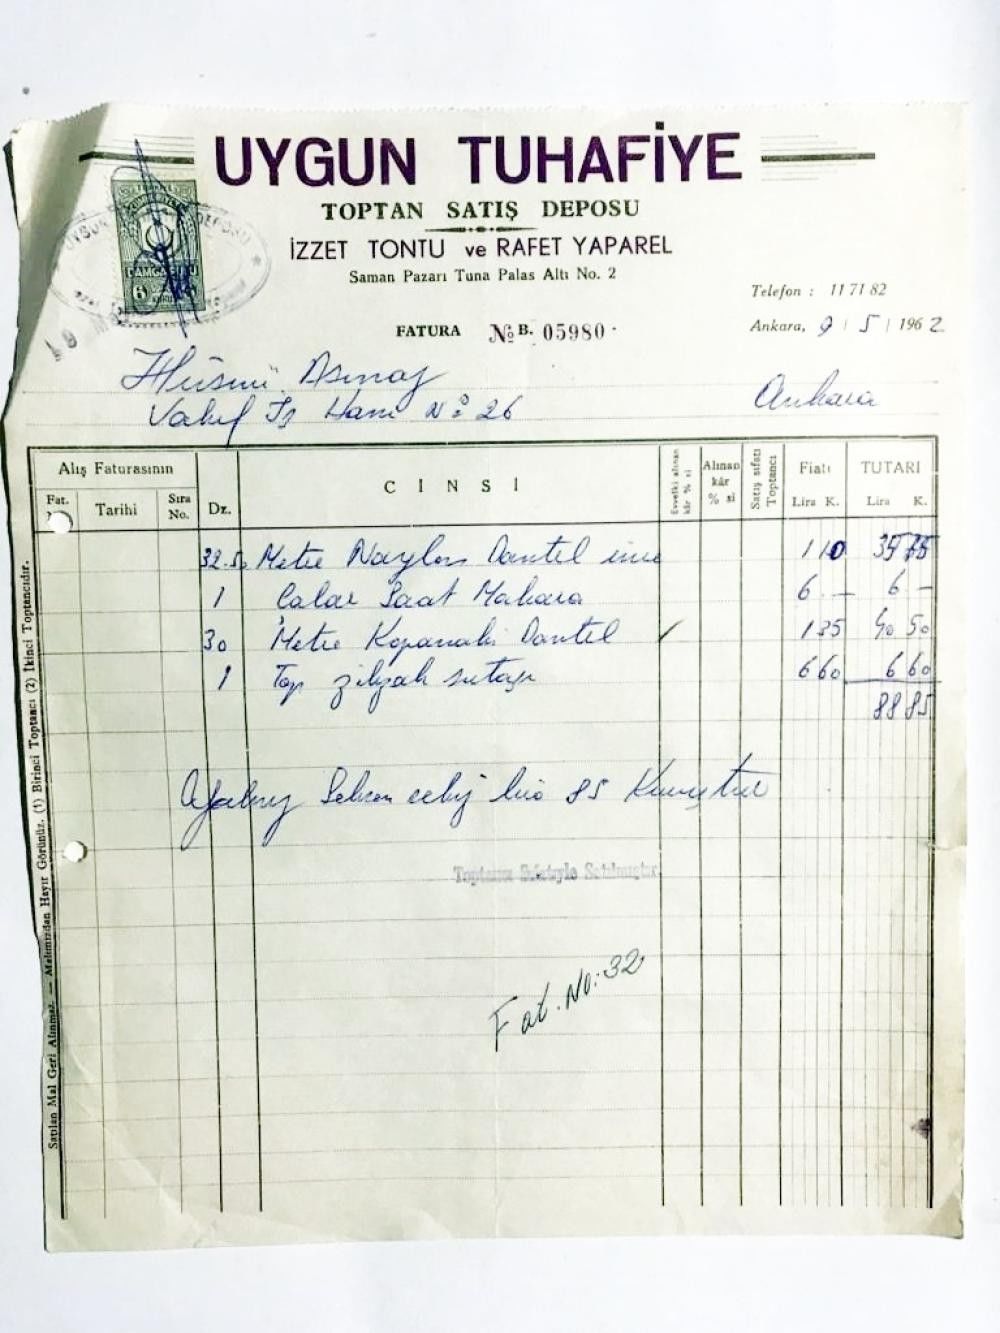 UYGUN TUHAFİYE
TOPTAN SATIŞ DEPOSU
İZZET TONTU ve RAFET YAPAREL
Saman Pazarı Tuna Palas Altı No. 2
DAMGA PULU
6
Telefon : 11 71 82
FATURA No B. 05980
Ankara, 9 / 5 / 1962
Hüsnü
Vakıf İş Hanı No 26
Ankara
Alış Faturasının
Fat. Tarihi Sıra No.
Dz.
CİNSİ
Evvelki alınan kâr % si
Alınan kâr % si
Satış sıfatı Toptancı
Fiatı Lira K.
TUTARI Lira K.
32.50 Metre Naylon Dantel ince 110 35 75
1 Çalar Saat Makara 6.— 6 —
30 Metre Kopanaki Dantel 135 40 50
1 Top zikzak sutaşı 660 6 60
88 85
Yalnız Seksen sekiz lira 85 Kuruştur
Toptancı Sıfatiyle Satılmıştır
Fat. No: 32
Satılan Mal Geri Alınmaz. — Malımızdan Hayır Görünüz. (1) Birinci Toptancı (2) İkinci Toptancıdır.